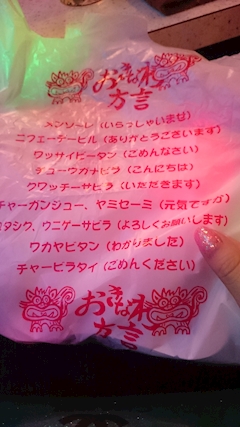 おきなわ
方言
メンソーレ（いらっしゃいませ）
ニフェーデービル（ありがとうございます）
ワッサイビータン（ごめんなさい）
チューウガナビラ（こんにちは）
クワッチーサビラ（いただきます）
チャーガンジュー、ヤミセーミ（元気ですか
タシク、ウニゲーサビラ（よろしくお願いします）
ワカヤビタン（わかりました）
チャービラタイ（ごめんください）
おきなわ
方言